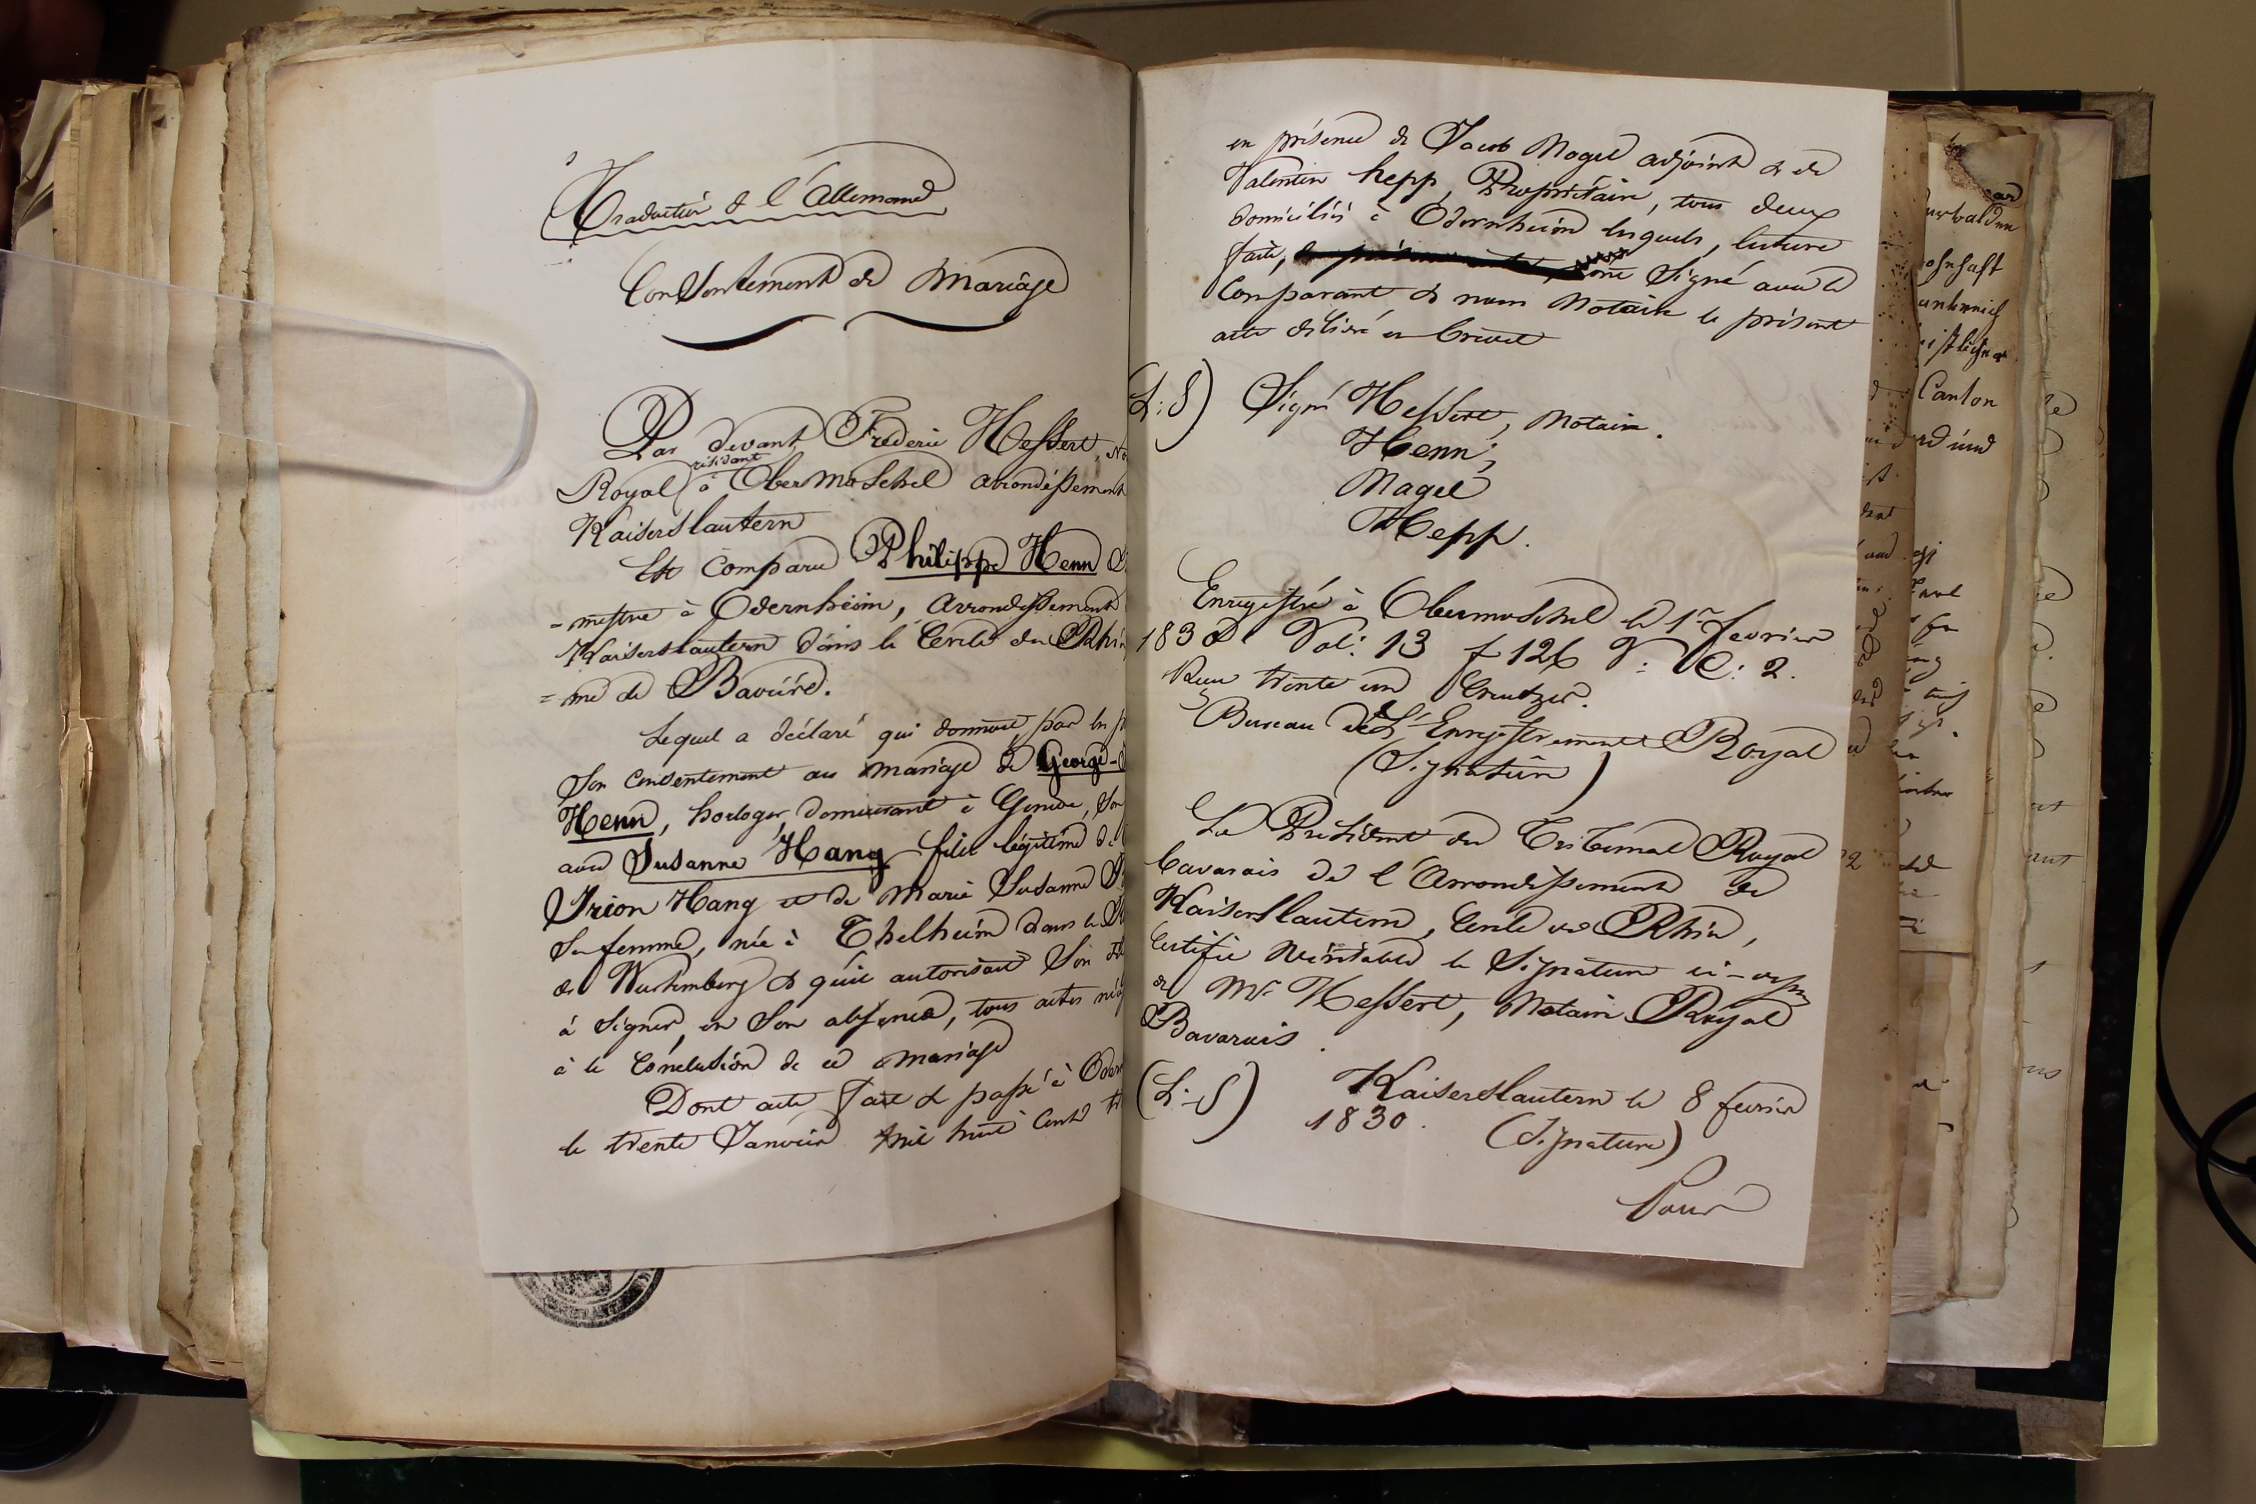 Traduction de l'Allemand
Consentement de Mariage
Par devant Frederic Hessert, No
Royal résidant à Obermoschel arrondissement
Kaiserslautern
Est comparu Philippe Henn
= mestre à Odernheim, Arrondissement
Kaiserslautern dans le Cercle du Rhin
= me de Baviére.
Lequel a déclaré qui donnait, par les p
Son consentement au mariage de George-
Henn, horloger demeurant à Genève, Son
avec Susanne Hang fille légitime de
Irion Hang et de Marie Susanne
Sa femme, née à Thelheim dans le
de Wurtemberg & qu'il autorisait Son
à Signer, en Son absence, tous actes néc
à la Conclusion de ce mariage
Dont acte fait & passé à Odern
le trente Janvier mil huit Cent tr
en présence de Jacob Magel adjoint & de
Valentin hepp, Propriétaire, tous deux
domiciliés à Odernheim lesquels, lecture
faite, ont Signé avec le
Comparant & nous Notaire le présent
acte délivré en brevet
(L:S) Signé Hessert, Notaire.
Henn,
Magel
Hepp.
Enregistré à Obermoschel le 1er fevrier
1830 Vol: 13 f 126 V: C: 2.
Reçu trente un Creutzer.
Bureau de L'Enregistrement Royal
(Signature)
Le President du Tribunal Royal
bavarois de l'Arrondissement de
Kaiserslautern, Cercle du Rhin,
Certifie véritable la Signature ci-dessus
de Mr Hessert, Notaire Royal
Bavarois.
(L:S) Kaiserslautern le 8 fevrier
1830. (Signature)
Pour
ohnhaft
Canton